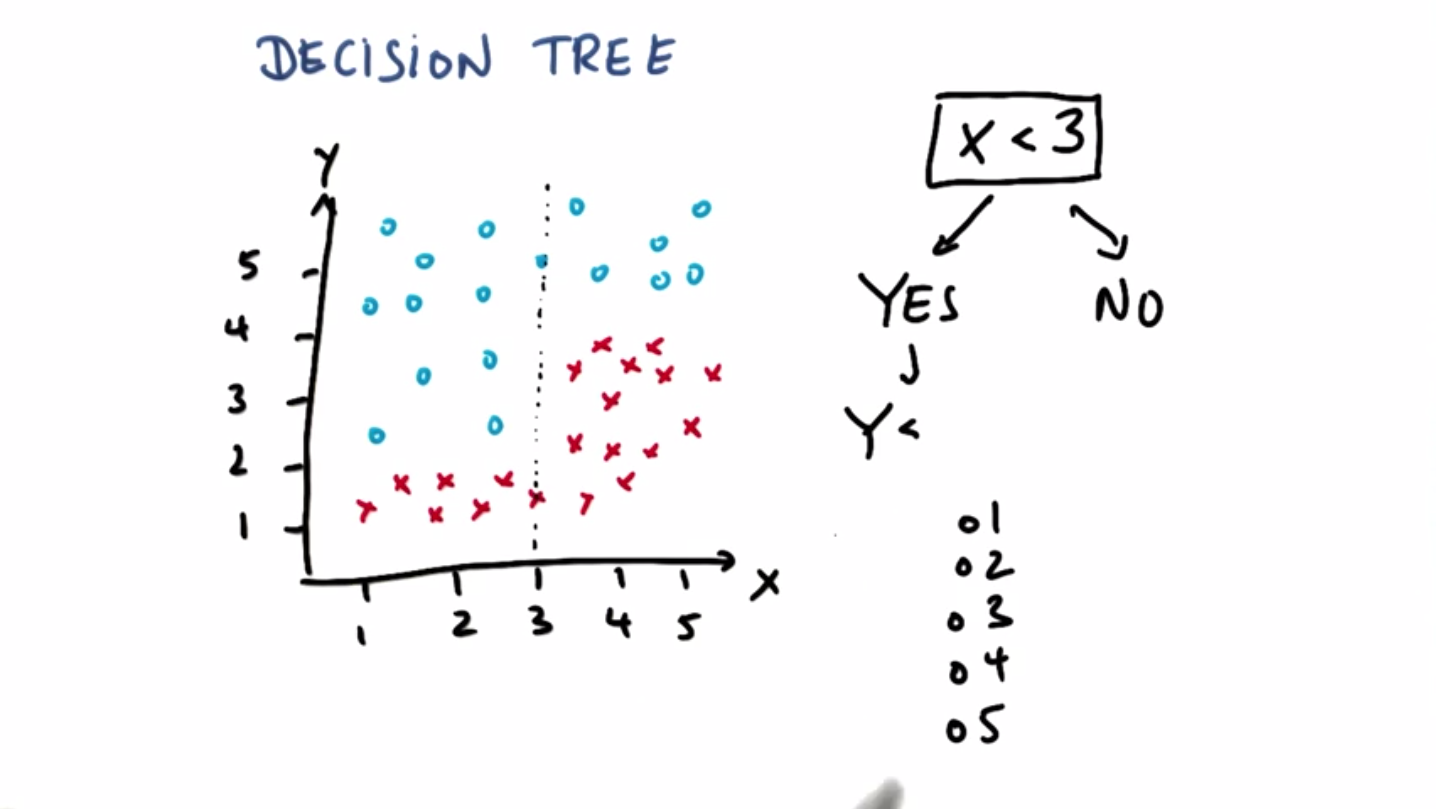 DECISION TREE
Y
5
4
3
2
1
1 2 3 4 5
X
X < 3
YES NO
Y <
1
2
3
4
5